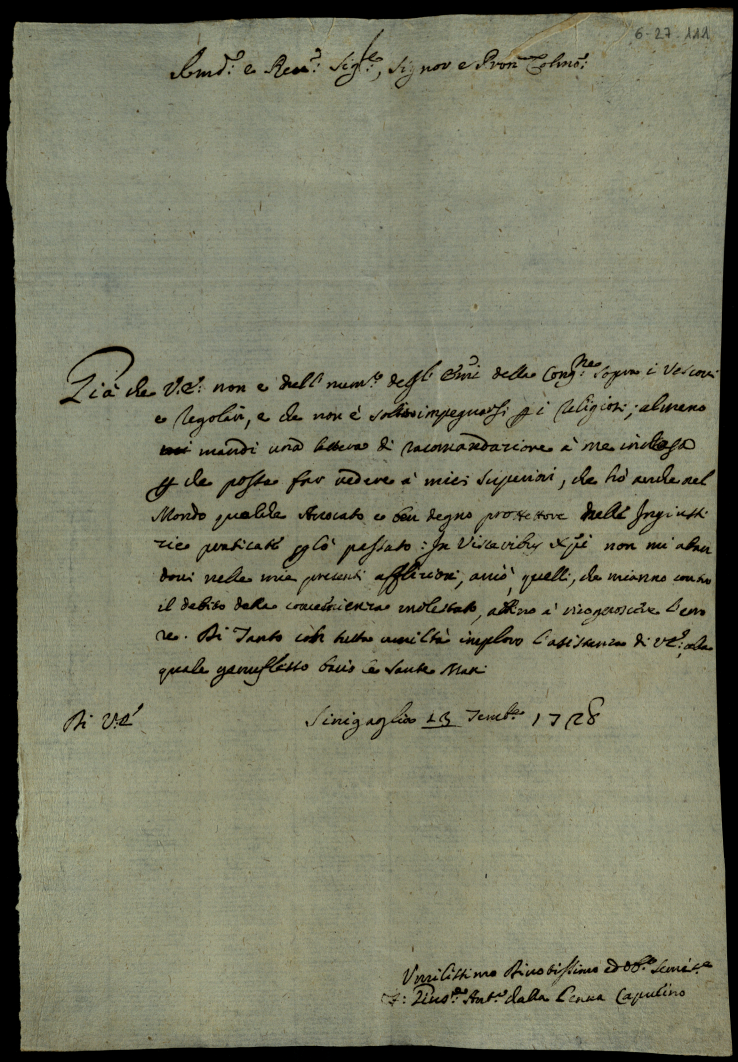 6-27-111
Em.º e Rev.º Sig.re, Signor e Pron Colmo:
Già che V.E. non è dell num.º degl' Emi della Cong.ne sopra i Vescovi
e Regolari, e che non è solito impegnarsi p i Religiosi; almeno
mandi una lettera di racomandazione à me inclusa
p che possa far vedere à miei Superiori, che hò anche nel
Mondo qualche Avocato e ben degno protettore delle Ingiusti
zie praticate p lo passato: In Visceribus Xpi non mi aban
doni nelle mie presenti afflizioni, acciò quelli, che mi anno contro
il debito della conscienza molestato, abino à ricognoscere l'erro
re. Di Tanto con tutta umiltà imploro l'assistenza di V.E., alla
quale genuflesso bacio le Sante Mani
Di V.E.
Sinigaglia 13 Temb.e 1728
Umilissimo Divotissimo ed Ob.mo Serv.e
F: Ant.º dalla Penna Capucino